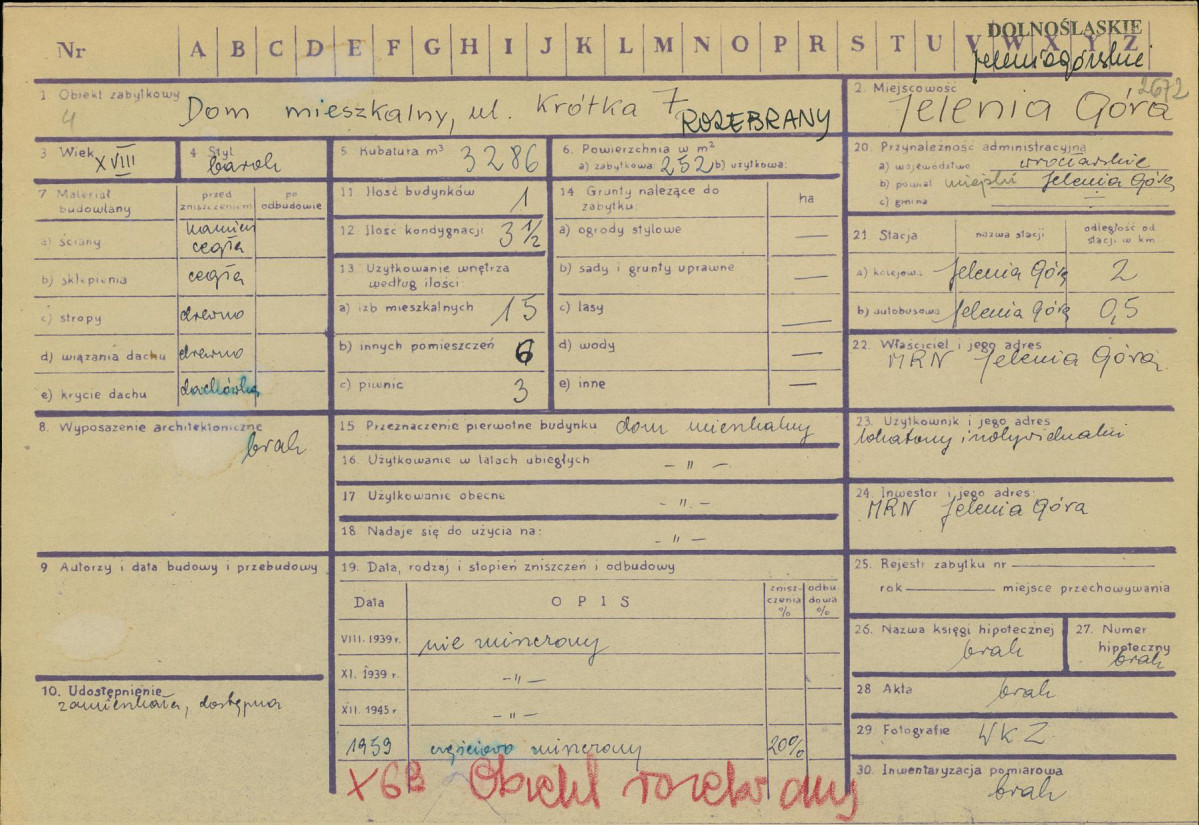 DOLNOŚLĄSKIE
Nr A B C D E F G H I J K L M N O P R S T U V W X Y Z
Jeleniogórskie
1. Obiekt zabytkowy
4
Dom mieszkalny, ul. Krótka 7
ROZEBRANY
2. Miejscowość
2672
Jelenia Góra
3 Wiek XVIII
4 Styl
barok
5 Kubatura m³ 3286
6. Powierzchnia w m²
a) zabytkowa: 252 b) użytkowa:
20. Przynależność administracyjna
a) województwo wrocławskie
b) powiat miejski Jelenia Góra
c) gmina —
7 Materiał budowlany
przed zniszczeniem
po odbudowie
a) ściany kamień cegła
b) sklepienia cegła
c) stropy drewno
d) wiązania dachu drewno
e) krycie dachu dachówka
11 Ilość budynków 1
12. Ilość kondygnacji 3 1/2
13. Użytkowanie wnętrza
według ilości:
a) izb mieszkalnych 15
b) innych pomieszczeń 6
c) piwnic 3
14 Grunty należące do
zabytku: ha
a) ogrody stylowe —
b) sady i grunty uprawne —
c) lasy —
d) wody —
e) inne —
21 Stacja nazwa stacji odległość od stacji w km
a) kolejowa Jelenia Góra 2
b) autobusowa Jelenia Góra 0,5
22. Właściciel i jego adres
MRN Jelenia Góra
8. Wyposażenie architektoniczne
brak
15 Przeznaczenie pierwotne budynku dom mieszkalny
16. Użytkowanie w latach ubiegłych – " –
17 Użytkowanie obecne – " –
18. Nadaje się do użycia na: – " –
23. Użytkownik i jego adres
lokatorzy indywidualni
24. Inwestor i jego adres:
MRN Jelenia Góra
9 Autorzy i data budowy i przebudowy
10. Udostępnienie
zamieszkała, dostępna
19. Data, rodzaj i stopień zniszczeń i odbudowy
Data OPIS zniszczenia % odbudowa %
VIII. 1939 r. nie niszczony
XI. 1939 r. – " –
XII. 1945 r. – " –
1959 częściowo niszczony 20%
X 63 Obiekt rozebrany
25. Rejestr zabytku nr
rok miejsce przechowywania
26. Nazwa księgi hipotecznej
brak
27. Numer
hipoteczny
brak
28 Akta brak
29 Fotografie WKZ
30. Inwentaryzacja pomiarowa
brak